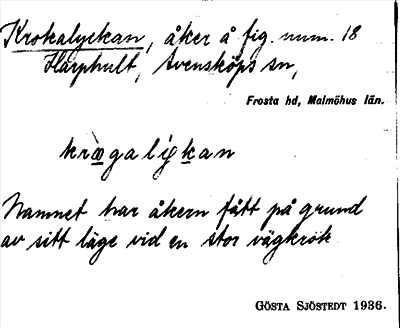 Krokalyckan, åker å fig. num. 18
Harphult, Svensköps sn,
Frosta hd, Malmöhus län.
krògaligkan
Namnet har åkern fått på grund
av sitt läge vid en stor vägkrok
GÖSTA SJÖSTEDT 1936.